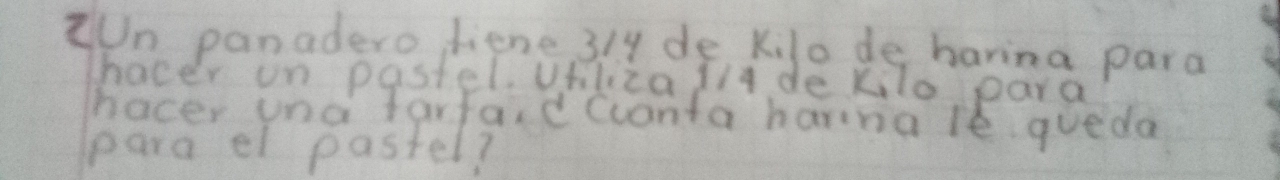 2 Un panadero tiene 3/4 de Kilo de harina para
hacer un pastel. Utiliza 1/4 de Kilo para
hacer una tarta. ¿Cuanta harina le queda
para el pastel?